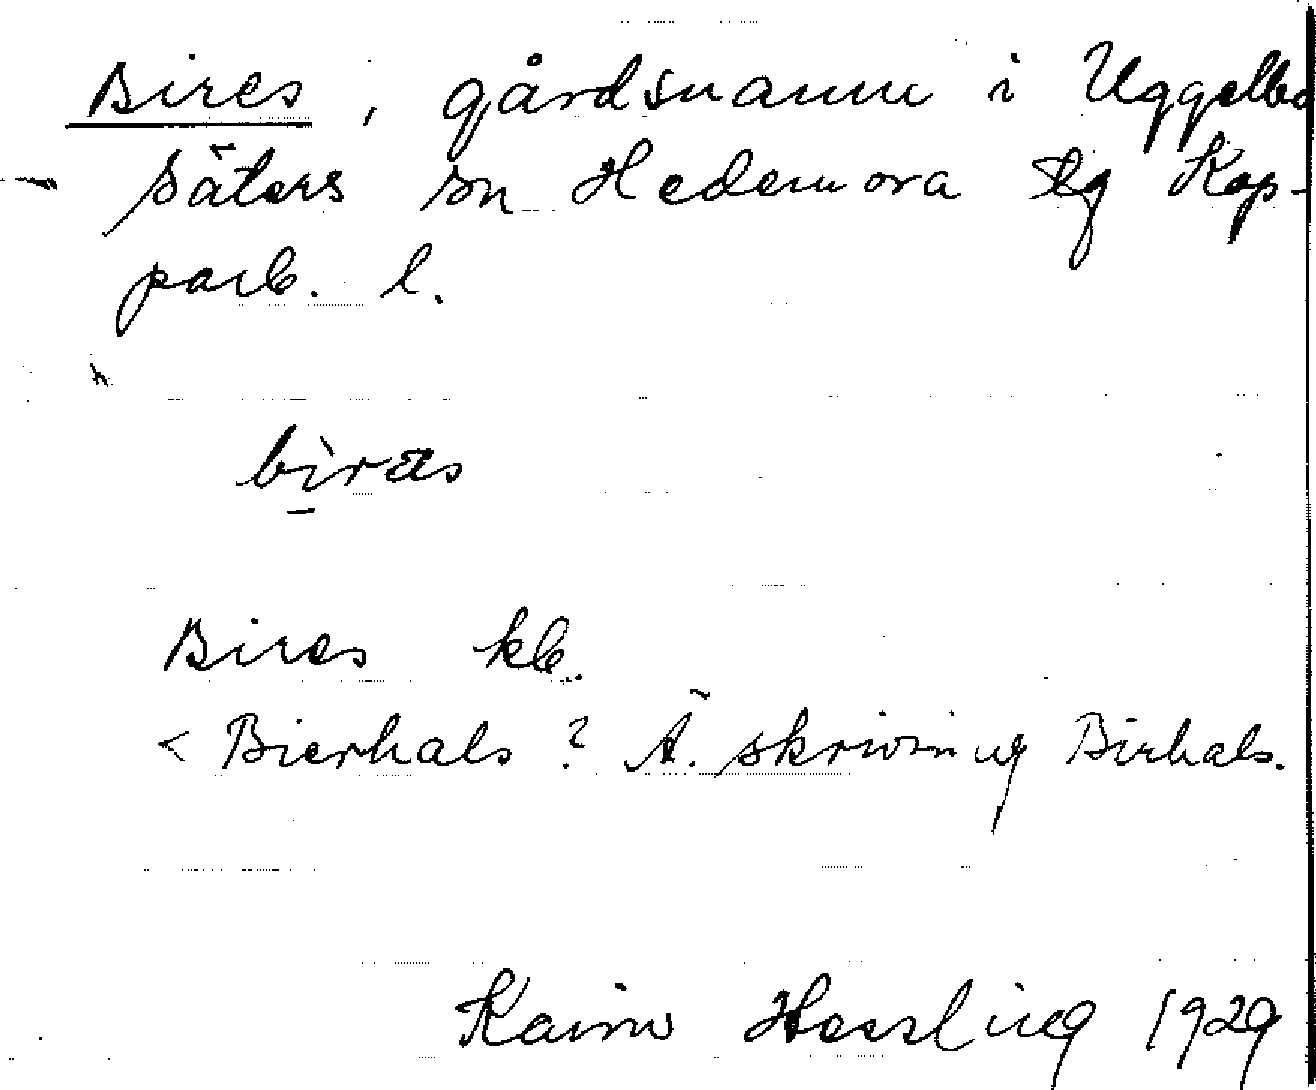 Bires, gårdsnamn i Uggelbo
Säters sn Hedemora tg Kop-
parb. l.
biras
Bires kb.
< Bierhals? Ä. skrivning Birhals.
Karin Hessling 1929